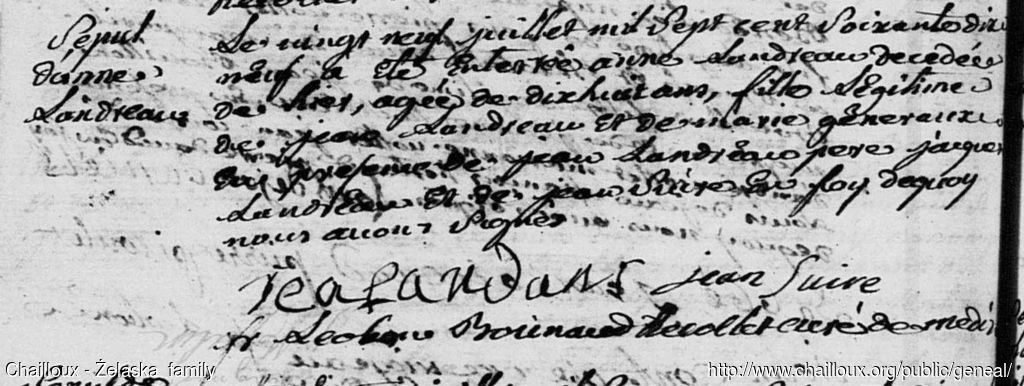 Sepul
danne
Landreau
Le vingt neuf juillet mil Sept cent Soixante dix
neuf a ete Enterrée anne Landreau decedée
de hier, agée de dixhuit ans, fille Légitime
de jean Landreau Et de marie géneraux
En presence de jean Landréau pere jacques
Landreau Et de jean Suire En foy dequoy
nous avons Signés
jean Suire
fr Boinaud Recollet curé de
Chailloux - Żelaska family
http://www.chailloux.org/public/geneal/